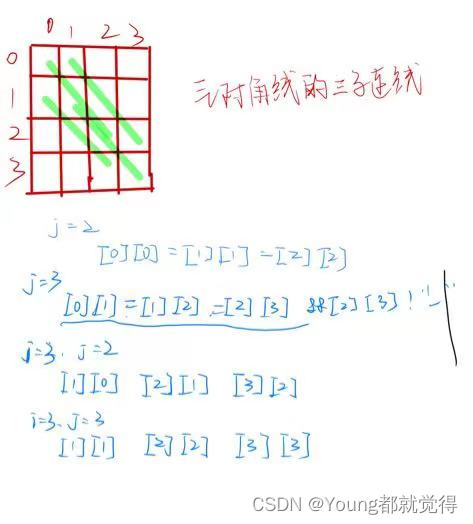 0 1 2 3
0
1
2
3
对角线的三子连线
j=2
[0][0]=[1][1]=[2][2]
j=3
[0][1]=[1][2]=[2][3] &&[2][3]!=' '
i=3. j=2
[1][0] [2][1] [3][2]
i=3. j=3
[1][1] [2][2] [3][3]
CSDN @Young都就觉得